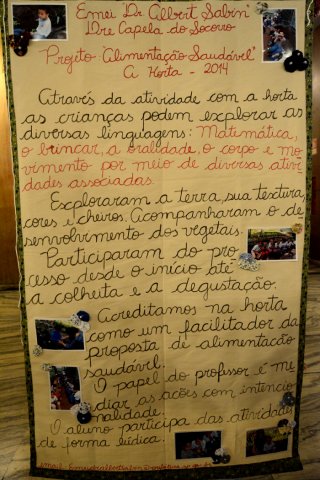 Emei Dr Albert Sabin"
Dre Capela do Socorro
Projeto "Alimentação Saudável"
A Horta - 2014
Através da atividade com a horta
as crianças podem explorar as
diversas linguagens: Matemática,
o brincar, a oralidade, o corpo e mo
vimento por meio de diversas ativi
dades associadas.
Exploraram a terra, sua textura,
cores e cheiros. Acompanharam o de
senvolvimento dos vegetais.
Participaram do pro
cesso desde o início até
a colheita e a degustação.
Acreditamos na horta
como um facilitador da
proposta de alimentação
saudável.
O papel do professor é me
diar as ações com intencio
nalidade.
O aluno participa das atividades
de forma lúdica.
email-